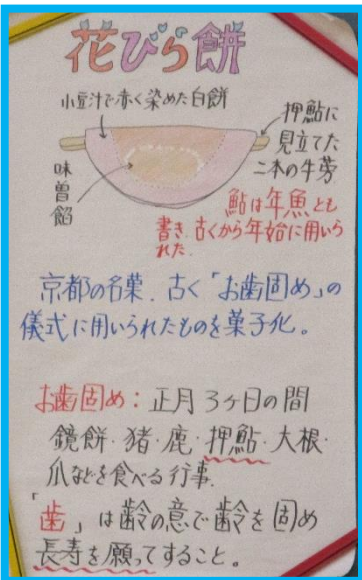 花びら餅
小豆汁で赤く染めた白餅
押鮎に
見立てた
二本の牛蒡
味噌餡
鮎は年魚とも
書き、古くから年始に用いら
れた。
京都の名菓. 古く「お歯固め」の
儀式に用いられたものを菓子化。
お歯固め：正月3ヶ日の間
鏡餅・猪・鹿・押鮎・大根・
瓜などを食べる行事.
「歯」は齢の意で齢を固め
長寿を願ってすること。